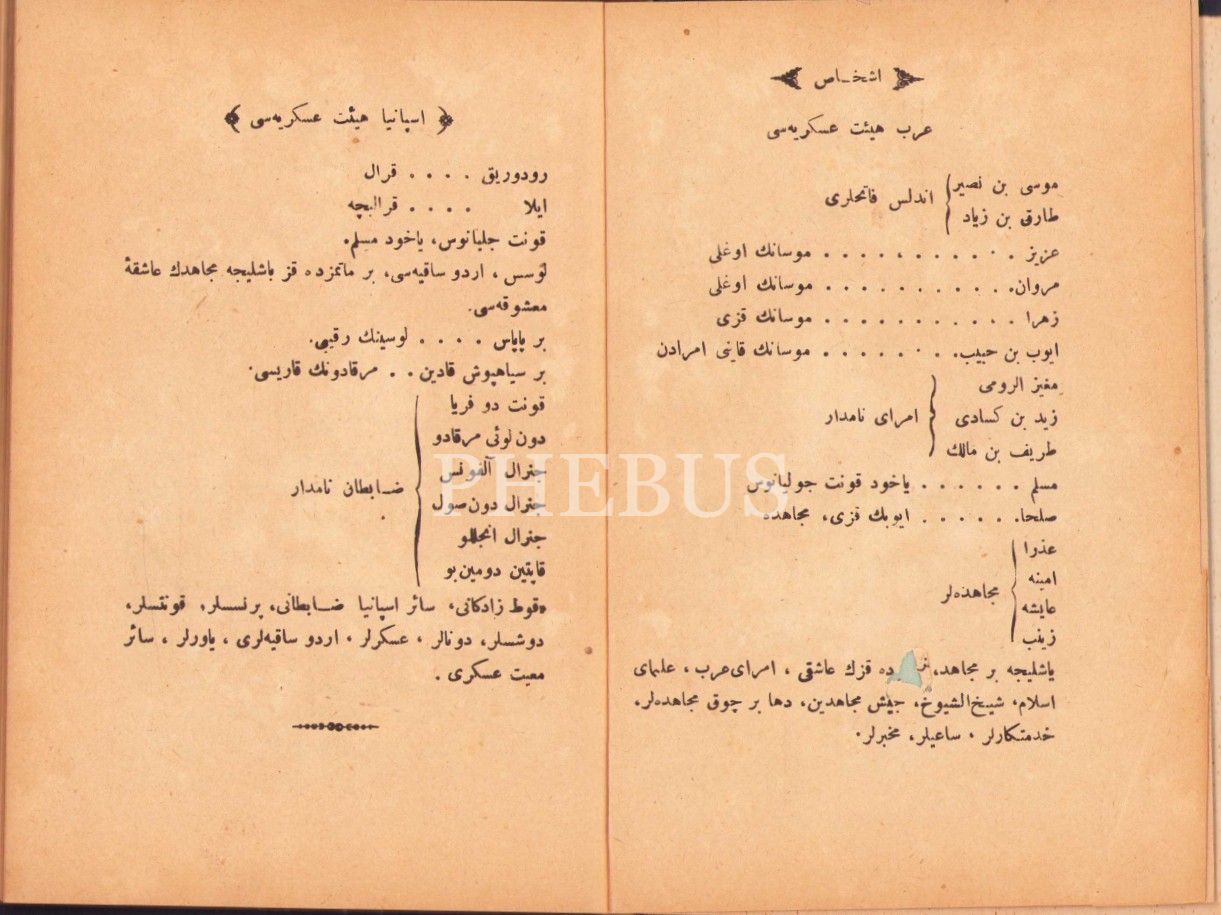 اشخاص
عرب هيئت عسكريه‌سی
موسی بن نصير
طارق بن زياد
اندلس فاتحلری
عزيز . . . . . . . . . . . موسانك اوغلی
مروان. . . . . . . . . . . موسانك اوغلی
زهرا . . . . . . . . . . . موسانك قزی
ايوب بن حبيب. . . . . . . موسانك قاينی امرادن
مغيز الرومی
زيد بن كسادی
طريف بن مالك
امرای نامدار
مسلم . . . . . . ياخود قونت جوليانوس
صلحا. . . . . . ايوبك قزی، مجاهده
عذرا
امينه
عايشه
زينب
مجاهده‌لر
ياشليجه بر مجاهد، ده قزك عاشقی ، امرای عرب ، علمای
اسلام، شيخ الشيوخ، جيش مجاهدين، دها بر چوق مجاهده‌لر،
خدمتكارلر ، ساعيلر، مخبرلر.
اسپانيا هيئت عسكريه‌سی
رودوريق . . . . قرال
ايلا . . . . قراليچه
قونت جليانوس، ياخود مسلم.
لوسس ، اردو ساقيه‌سی، بر ماتمزده قز باشليجه مجاهدك عاشقۀ
معشوقه‌سی.
بر پاپاس . . . . لوسينك رقيبی.
بر سياهپوش قادين . . مرقادونك قاريسی.
قونت دو فريا
دون لوئی مرقادو
جنرال آلفونس
جنرال دون صول
جنرال انجللو
قاپتين دومين بو
ضابطان نامدار
قوط زادكانی، سائر اسپانيا ضابطانی، پرنسسلر، قونتسلر،
دوشسلر، دونالر ، عسكرلر ، اردو ساقيه‌لری ، ياورلر ، سائر
معيت عسكری .
PHEBUS